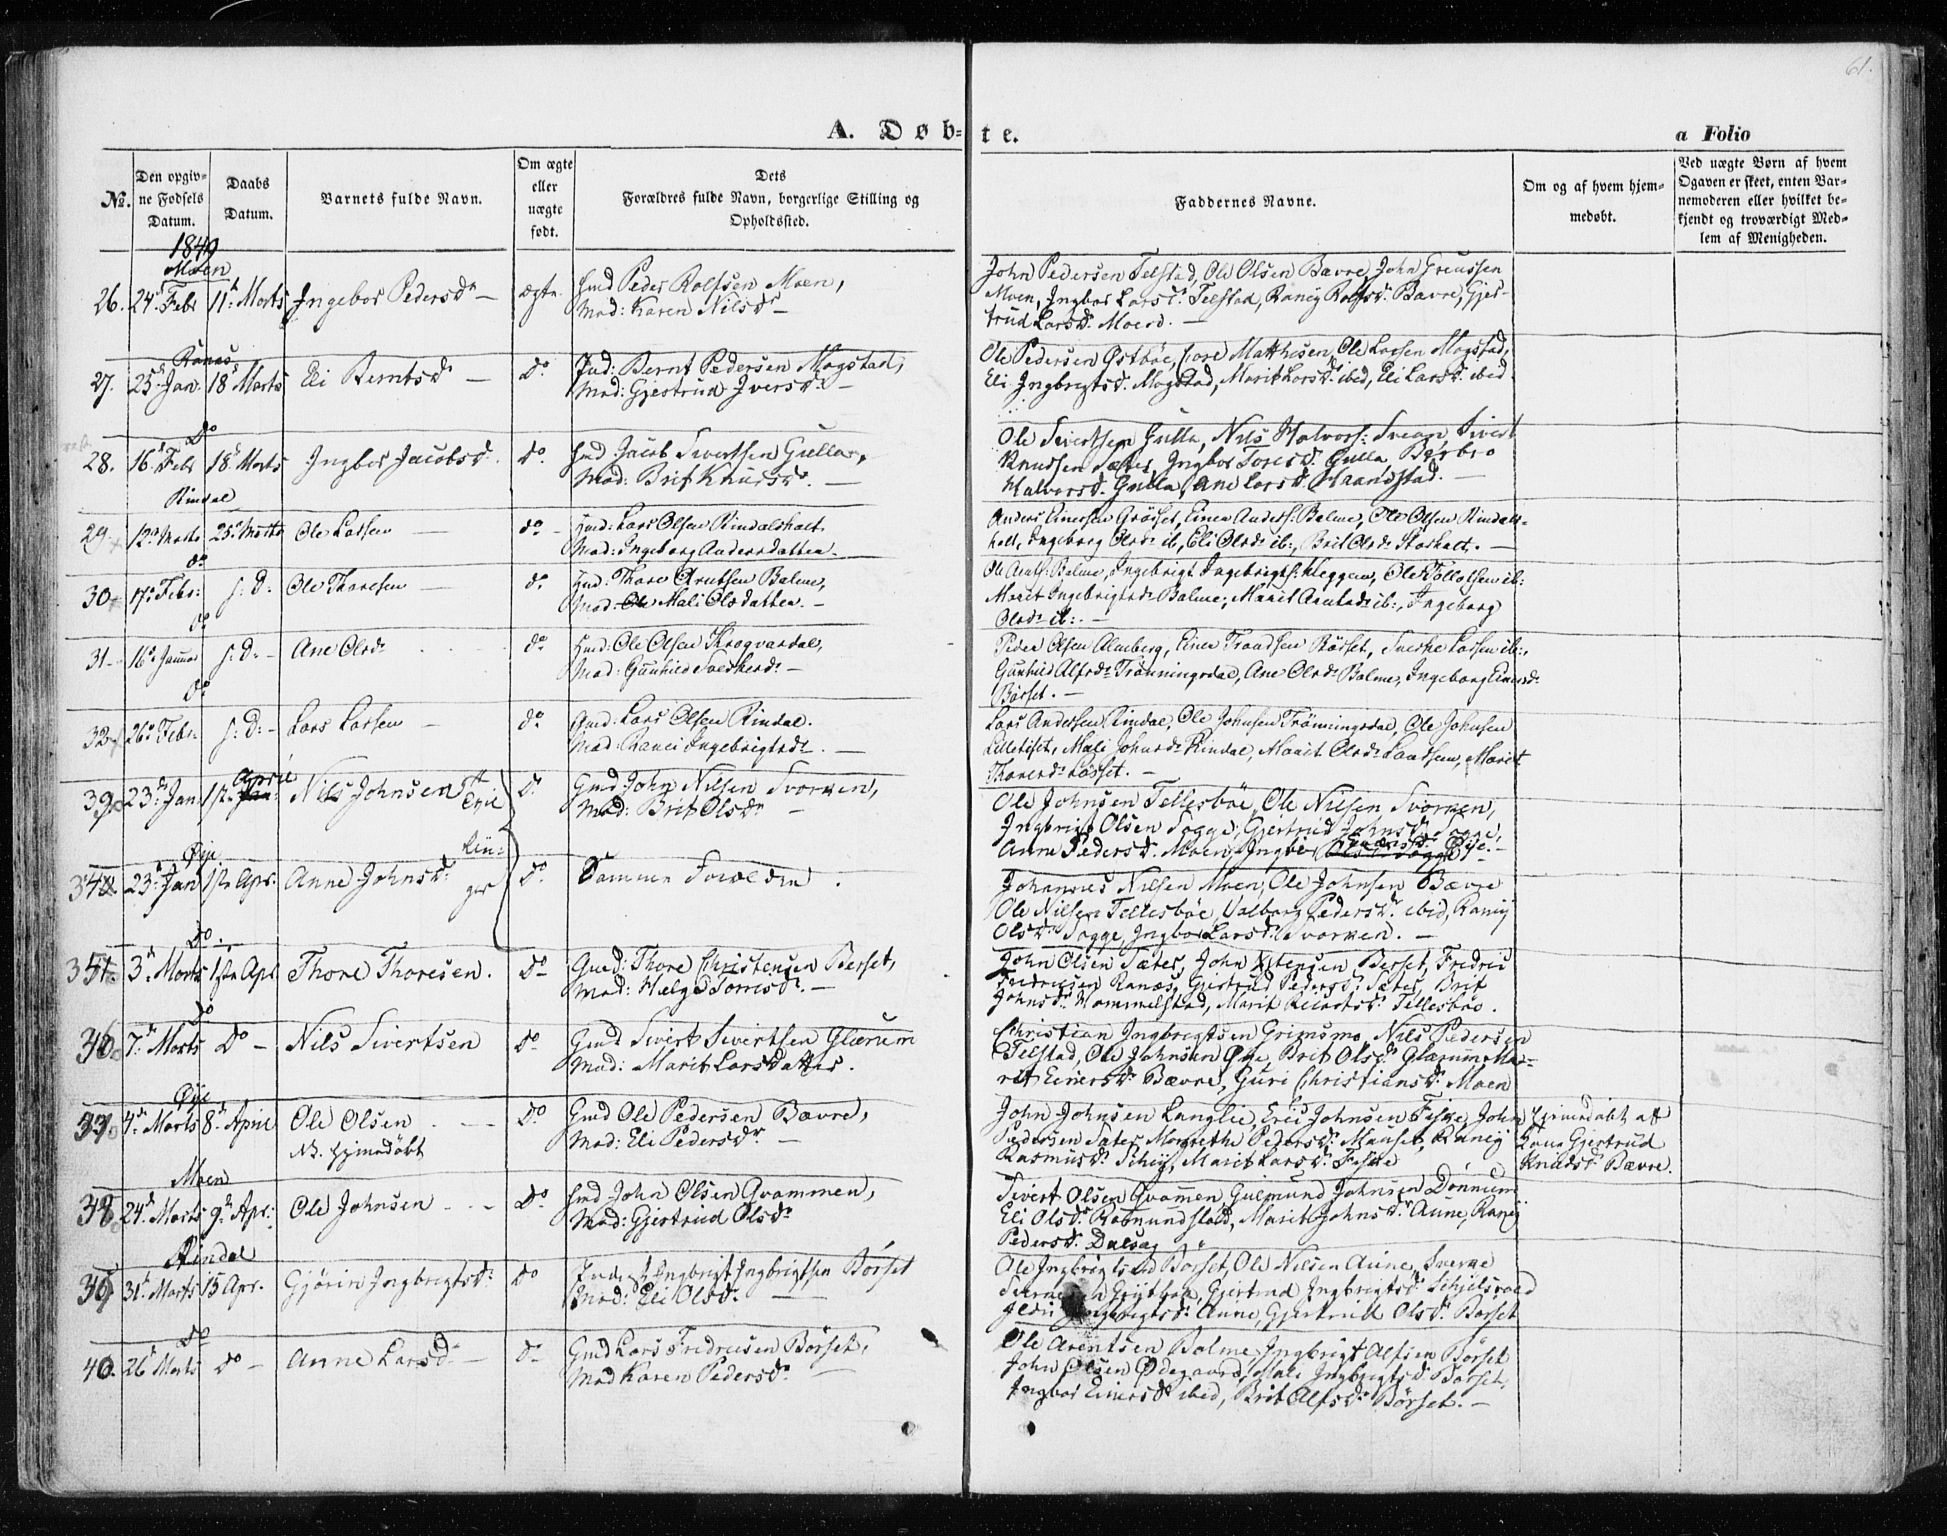 61.
A. Døb=te.
a Folio
No.
Den opgiv=
ne Fødsels
Datum.
Daabs
Datum.
Barnets fulde Navn.
Om ægte
eller
uægte
født.
Dets
Forældres fulde Navn, borgerlige Stilling og
Opholdssted.
Faddernes Navne.
Om og af hvem hjem=
medøbt.
Ved uægte Børn af hvem
Opgaven er skeet, enten Bar=
nemoderen eller hvilket be=
kjendt og troværdigt Med=
lem af Menigheden.
1849
Moen
26. 24 Febr 11 Marts Ingebor Pedersdr — ægte. Gmd Peder Rolfsen Moen,
Mod: Karen Nilsdr —
John Pedersen Telstad, Ole Olsen Bævre, John
Moen, Ingbor Larsdr Telstad, Ranig Rolfsdr Bævre, Gjer-
trud Larsdr Moen. —
Ranæs
27. 25 Jan. 18 Marts Eli Berntsdr — Do Ind: Bernt Pedersen Mogstad,
Mod: Gjertrud Iversdr —
Ole Pedersen Østbøe, Matthisen, Ole Larsen Mogstad,
Eli Ingbrigtsdr Mogstad, Marit Larsdr ibid, Eli Larsdr ibid
Do
28. 16 Febr 18 Marts Ingbor Jacobsdr. Do. Gmd Jacob Sivertsen Gulla,
Mod: Brit Knudsdr. —
Ole Sivertsen Gulla, Nils Halvors: Svean, Sivert
Knudsen Sæter, Ingbor Toresdr Gulla, Berbro
Halvorsdr Gulla, Ane Larsdr Haandstad. —
Rindal
29. 12 Marts 25 Martz Ole Larsen — do — Gmd: Lars Olsen Rindalshalt.
Mod: Ingeborg Andersdatter. —
Anders Einersen Grøset, Einer Anders: Bolme, Ole Olsen Rindals-
halt, Ingeborg Olsdr ib, Eli Olsdr ib:, Brit Olsdr Storhalt. —
do
30. 17 Febr: s: D: Ole Thoresen do Gmd: Thore Arntsen Bolme,
Mod: Mali Olsdatter. —
Ole Arnts: Bolme, Ingebrigt Ingebrigts: Heggem, Ole Tollofsen ib:
Marit Ingebrigtsdr Bolme, Marit Arntsdr ib:, Ingeborg
Olsdr ib:. —
do
31 16 Januar s: D: — Ane Olsdr do Gmd: Ole Olsen Krogvardal,
Mod: Gunhild Sverkesdr —
Peder Olsen Almberg, Einer Trondsen Børset, Sverke Larsen ib:,
Gunhild Alfsdr Trønningsdal, Ane Olsdr Bolme, Ingeborg Einersdr
Børset. —
do
32 26 Febr. s: D: — Lars Larsen — do Gmd: Lars Olsen Rindal.
Mod: Ranei Ingebrigtsdr. —
Lars Andersen Rindal, Ole Johnsen Trønningsdal, Ole Johnsen
Lilletiset, Mali Johnsdr Rindal, Marit Olsdr, Marit
Thoresdr Løsset. —
33 23 Jan: 1ste April Nils Johnsen Do Gmd: John Nilsen Svorken,
Mod: Brit Olsdr —
Ole Johnsen Tellesbøe, Ole Nilsen Svorken,
Ingbrigt Olsen Sogge, Gjertrud Johnsdr Sogge,
Anne Pedersdr. Moen, Ingbor Øye. —
Øye
34 23 Jan 1ste Apr: Anne Johnsdr. Do Sammen Forældre.
Johannes Nilsen Moen, Ole Johnsen Bævre
Ole Nilsen Tellesbøe, Valborg Pedersdr. ibid, Ranig
Olsdr Sogge, Ingbor Larsdr Svorken. —
Do.
35. 3 Marts 1ste Apr Thore Thoresen. Do Gmd: Thore Christensen Berset,
Mod: Helg Tomesdr. —
John Olsen Sæter, John Xstensen Berset, Fredric
Fredricsen Ranæs, Gjertrud Pedersdr Sæter, Brit
Johnsdr Hammelstad, Marit Tellesbøe.
Do
36 7 Marts Do — Nils Sivertsen Do Gmd Sivert Sivertsen Glærum
Mod: Marit Larsdatter.
Christian Ingbrigtsen Grimsmo, Nils Pedersen
Telstad, Ole Johnsen Øye, Brit Olsdr Glærum, Ma-
rit Einersdr Bævre, Guri Christiansdr Moen
Øye
37 4 Marts 8 April Ole Olsen Do Gmd Ole Pedersen Bævre,
NB. hjemdøbt Mod: Eli Pedersdr. —
John Johnsen Langlie, Eric Johnsen Fiske, John
Pedersen Sæter, Margrethe Pedersdr Mauset, Ranig
Rasmusdr Schei, Marit Larsdr. Fiske
hjemdøbt af
Kona Gjertrud
Knudsdr Bævre.
Moen
38 24 Marts 9 Apr: Ole Johnsen Do Gmd John Olsen Qvammen,
Mod: Gjertrud Olsdr
Sivert Olsen Qvammen, Gulmund Johnsen Dønnum
Eli Olsdr. Romundstad, Marit Johnsdr Aune, Ranig
Pedersdr. Dalseg
Rindal
39 31 Marts 15 Apr. Gjørin Ingbrigtsdr Do Inder: Ingbrigt Ingbrigtsen Børset
Mod: Eli Olsdr. —
Ole Ingbrigtsen Børset, Ole Nilsen Aune, Sverke
Gjertrud Ingbrigtsdr Schjelsvold
Ingbrigtsdr. Aune, Gjertrud Olsdr. Børset
Do
40. 26 Marts Do — Anne Larsdr — Do Gmd Lars Fredricsen Børset,
Mod Karen Pedersdr. —
Ole Arentsen Bolme, Ingbrigt Alfsen Børset
John Olsen Ødegaard, Mali Ingbrigtsdr. Børset,
Ingbor Einersdr ibid, Brit Alfsdr Børset. —